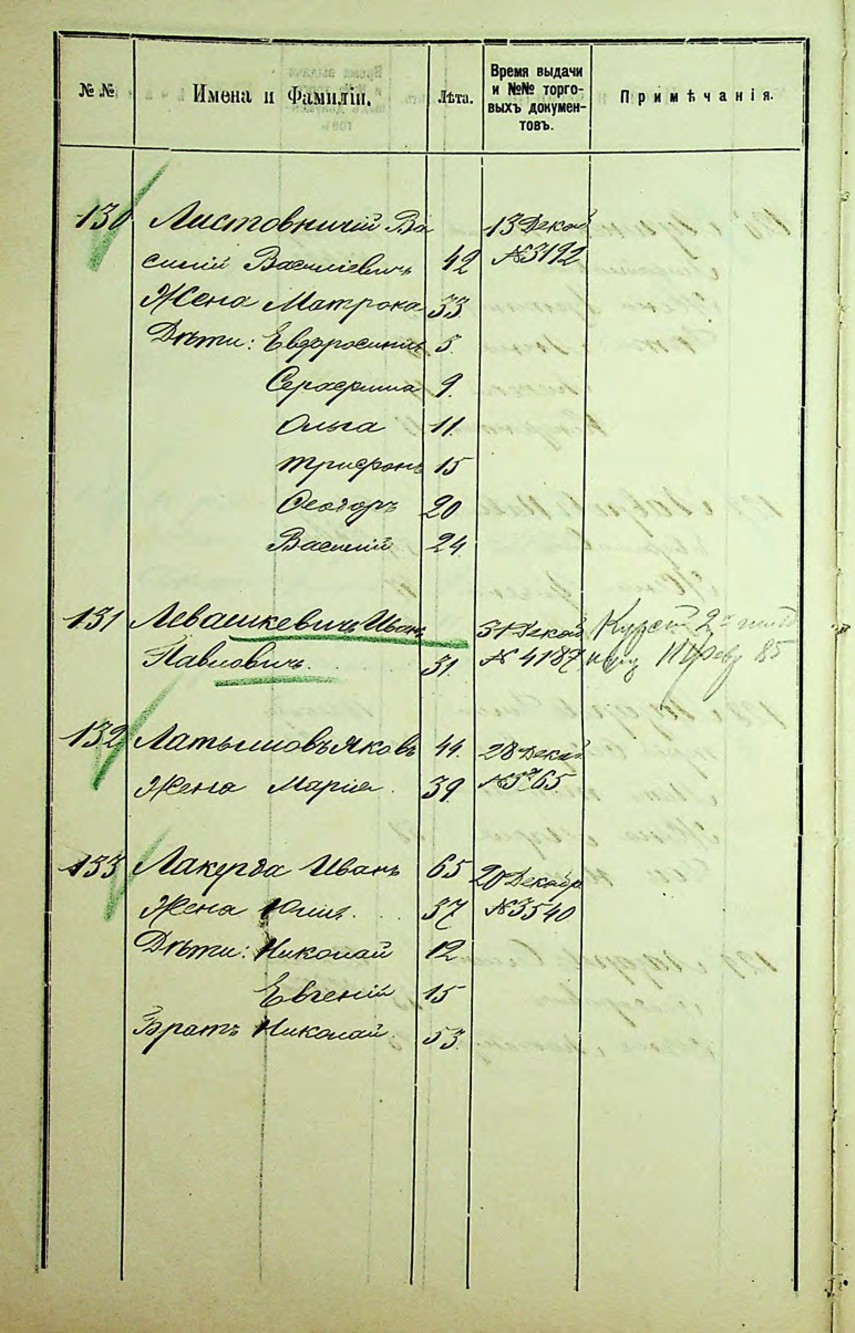 № №
Имена и Фамиліи.
Лѣта.
Время выдачи
и №№ торго-
выхъ докумен-
товъ.
Примѣчанія.
130 Листовничій Ва 13 Декаб
силій Василіевичъ 42 №3192
Жена Матрона 33
Дѣти: Евфросинія 5.
Серафима 9.
Ольга 11.
Трифонъ 15
Ѳеодоръ 20
Василій 24
131 Левашкевичъ Иванъ 31 Декаб 2й
Павловичъ. 31. № 4187 85
132 Латышовъ Яковъ 44. 28 Декаб
Жена Марія. 39.
133 Лакерда Иванъ 65 20 Декабр
Жена Юлія. 37 №3540
Дѣти: Николай 12
Евгеній 15
Братъ Николай 53.